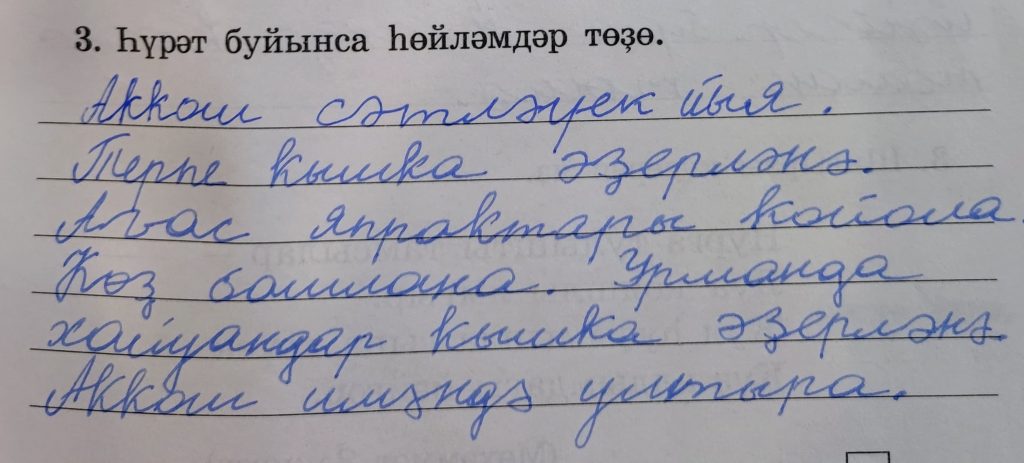 3. Һүрәт буйынса һөйләмдәр төҙө.
Аккош сәтләүек йыя.
Терпе кышка әҙерләнә.
Ағас япрактары койола.
Көҙ башлана. Урманда
хайуандар кышка әҙерләнә.
Аккош иләндә ултыра.